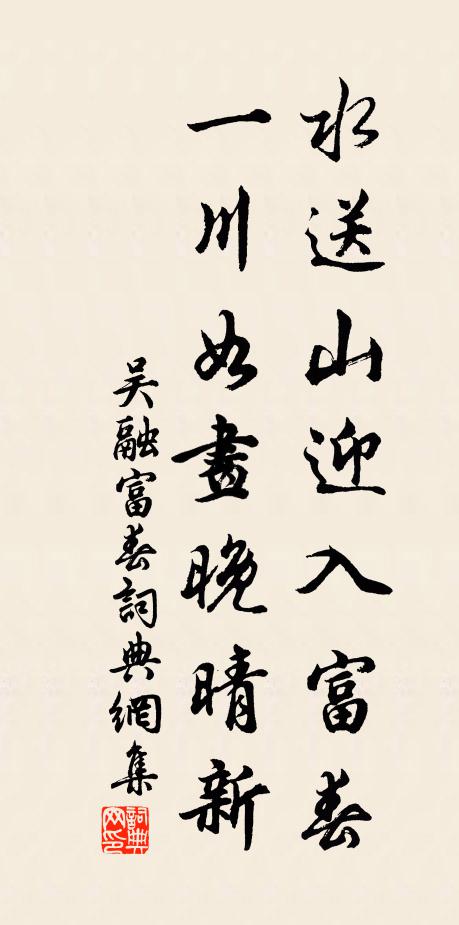 水送山迎入富春
一川如畫晚晴新
吴融富春詞典網集
詞典網印